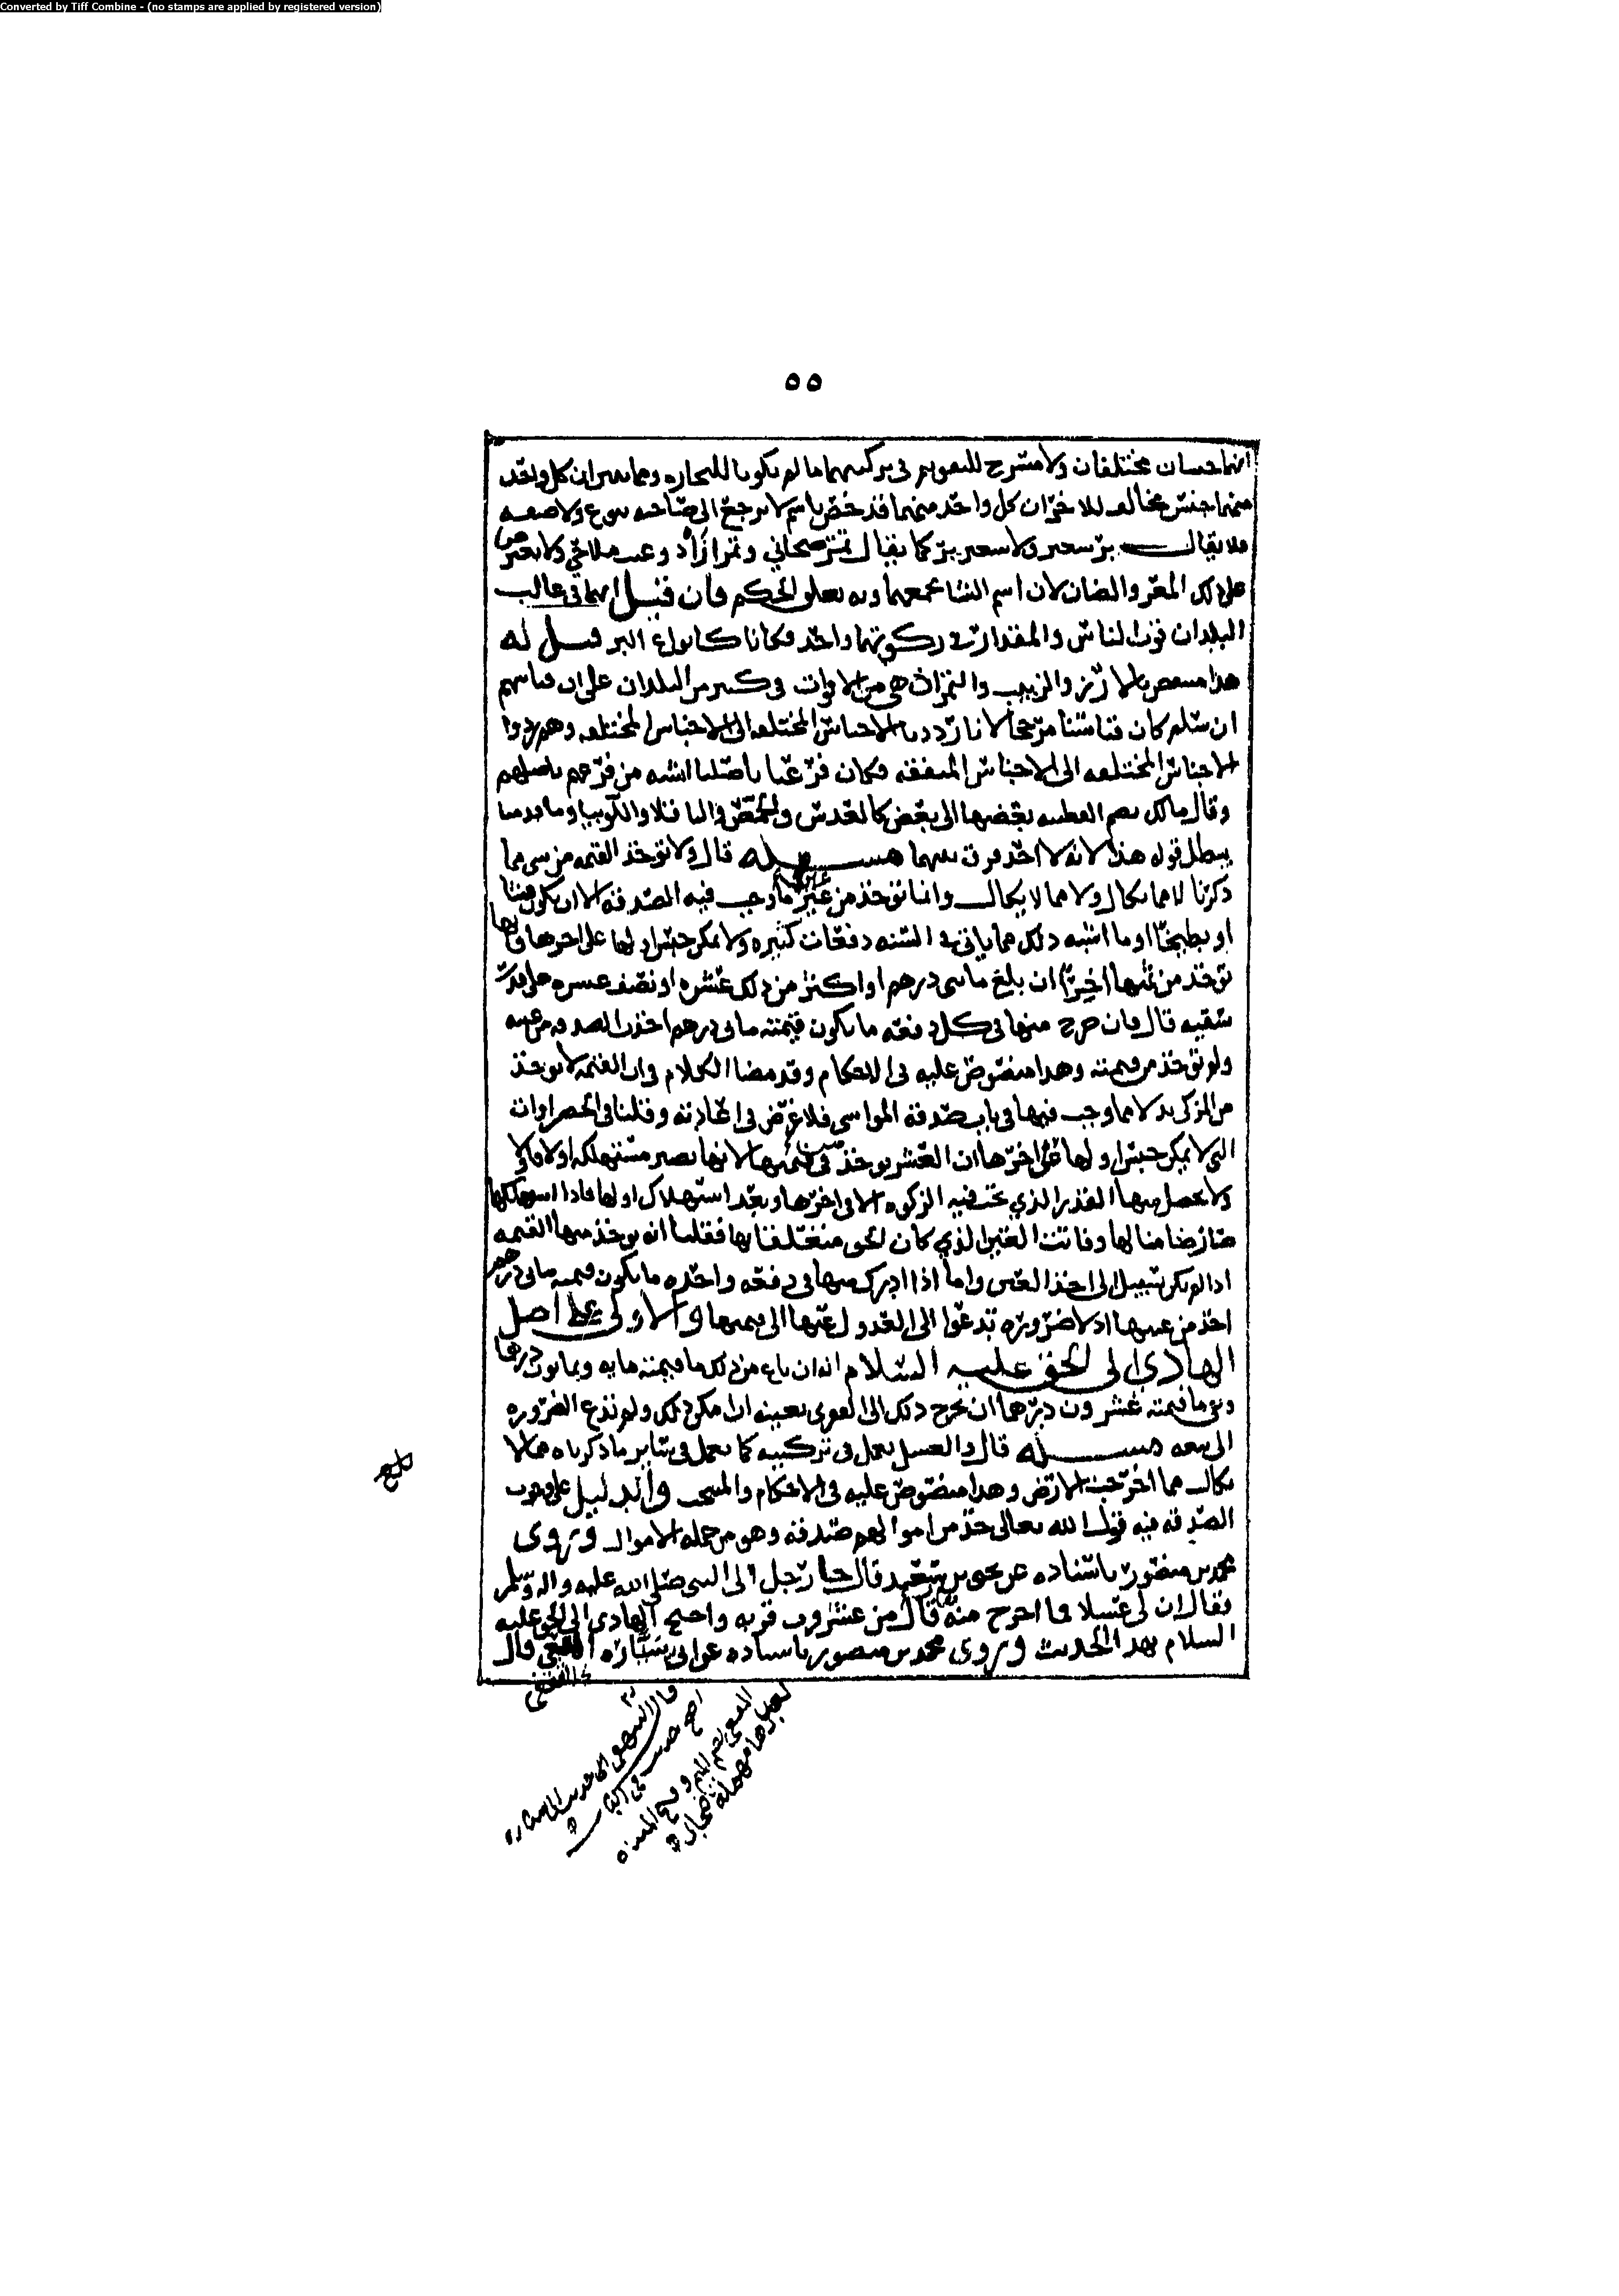 Converted by Tiff Combine - (no stamps are applied by registered version)
٥٥
انهما جنسان مختلفان ولا مسرح للتقويم في تزكيتهما ما لم يكونا للتجاره ومما يبين ان كل واحد
منهما جنس مخالف للاخر ان كل واحد منهما قد خص باسم لا يرجع الى صاحبه بنوع ولا صفه
فلا يقال بر شعير ولا شعير بر كما يقال تمر صيحاني وتمر ازاذ وعنب ملاحي ولا يعترض
على ذلك المعز والضان لان اسم الشا يجمعهما وبه يعلق الحكم فان قيل انهما في غالب
البلدان قوت الناس والمقدار في زكوتهما واحد فكانا كانواع البر قيل له
هذا منتقض بالارز والزبيب والتمر اذ هي من الاقوات في كثير من البلدان على ان قياسهم
ان سلم كان قياسنا مرجحا لانا رددنا الاجناس المختلفه الى الاجناس المختلفه وهم ردوا
الاجناس المختلفه الى الاجناس المتفقه فكان فرعنا باصلنا اشبه من فرعهم باصلهم
وقال مالك بضم القطنيه بعضها الى بعض كالعدس والحمص والباقلا واللوبيا وما قدمنا
يبطل قوله هذا لانه لا احد فرق بينهما مسئله قال ولا توخذ القيمه من شي مما
ذكرنا لا مما يكال ولا مما لا يكال وانما توخذ من عين ما وجب فيه الصدقه الا ان يكون قثا
او بطيخا او ما اشبه ذلك مما ياتي في السنه دفعات كثيره ولا يمكن حبس اولها على اخرها فانها
توخذ من ثمنها اخرا ان بلغ مائتي درهم او اكثر من ذلك عشره او نصف عشره على قدر
سقيه قال فان خرج منها في كل دفعه ما يكون قيمته مائتي درهم اخذت الصدقه من عينه
ولم توخذ من قيمته وهذا منصوص عليه في الاحكام وقد مضا الكلام في ان القيمه لا توخذ
من المزكي بدلا مما وجب فيها في باب صدقة المواشي فلا غرض في اعادته وقلنا في الخضراوات
التي لا يمكن حبس اولها على اخرها ان العشر يوخذ من قيمتها لانها تصير مستهلكه اولا فاولا
ولا يحصل منها القدر الذي يجب فيه الزكوه الا في اخرها وبعد استهلاك اولها فاذا استهلكها
صار ضامنا لها وفاتت العين الذي كان الحق متعلقا بها فقلنا انه يوخذ منها القيمه
اذا لم يكن سبيل الى اخذ العين واما اذا ادرك منها في دفعه واحده ما يكون قيمته مائتي درهم
اخذ من عينها اذ لا ضروره تدعوا الى العدول عنها الى قيمتها والاولى على اصل
الهادي الى الحق عليه السلام انه ان باع من ذلك ما قيمته مايه وثمانون درهما
وبقي ما قيمته عشرون درهما ان يخرج ذلك الى العشر بعينه ان امكن ذلك ولم تدع الضروره
الى بيعه مسئله قال والعسل يعمل في تزكيته كما يعمل في سائر ما ذكرناه مما لا
يكال مما اخرجت الارض وهذا منصوص عليه في الاحكام والمنتخب والدليل على وجوب
الصدقه فيه قول الله تعالى خذ من اموالهم صدقه وهو من جمله الاموال وروى
محمد بن منصور باسناده عن يحيى بن سعيد قال جا رجل الى النبي صلى الله عليه واله وسلم
فقال ان لي عسلا فما اخرج منه قال من عشر قرب قربه واحتج الهادي الى الحق عليه
السلام بهذا الحديث وروى محمد بن منصور باسناده عن ابي سياره المتعي قال